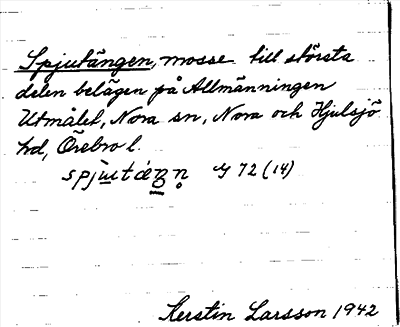 Spjutängen, mosse till största
delen belägen på Allmänningen
Utmålet, Nora sn, Nora och Hjulsjö
hd, Örebro l.
72 (14)
Kerstin Larsson 1942